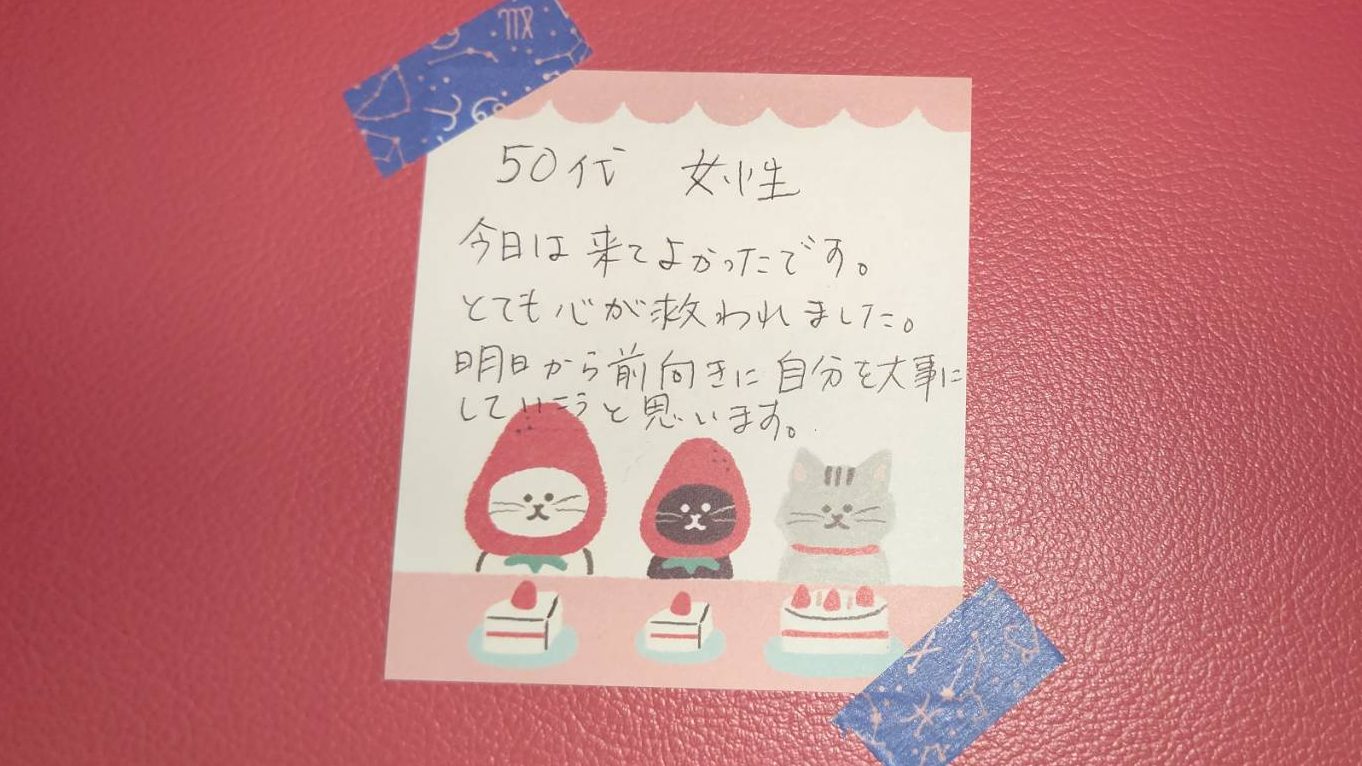 50代 女性
今日は来てよかったです。
とても心が救われました。
明日から前向きに自分を大事に
していこうと思います。